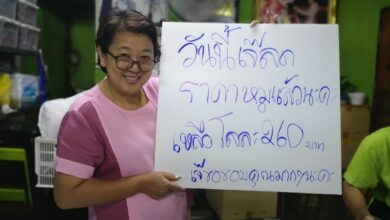 วันนี้เลือด
ราคาหมูแล้วนะคะ
เหลือ โลละ 260 บาท
เจ๊ขอขอบคุณมากๆนะคะ